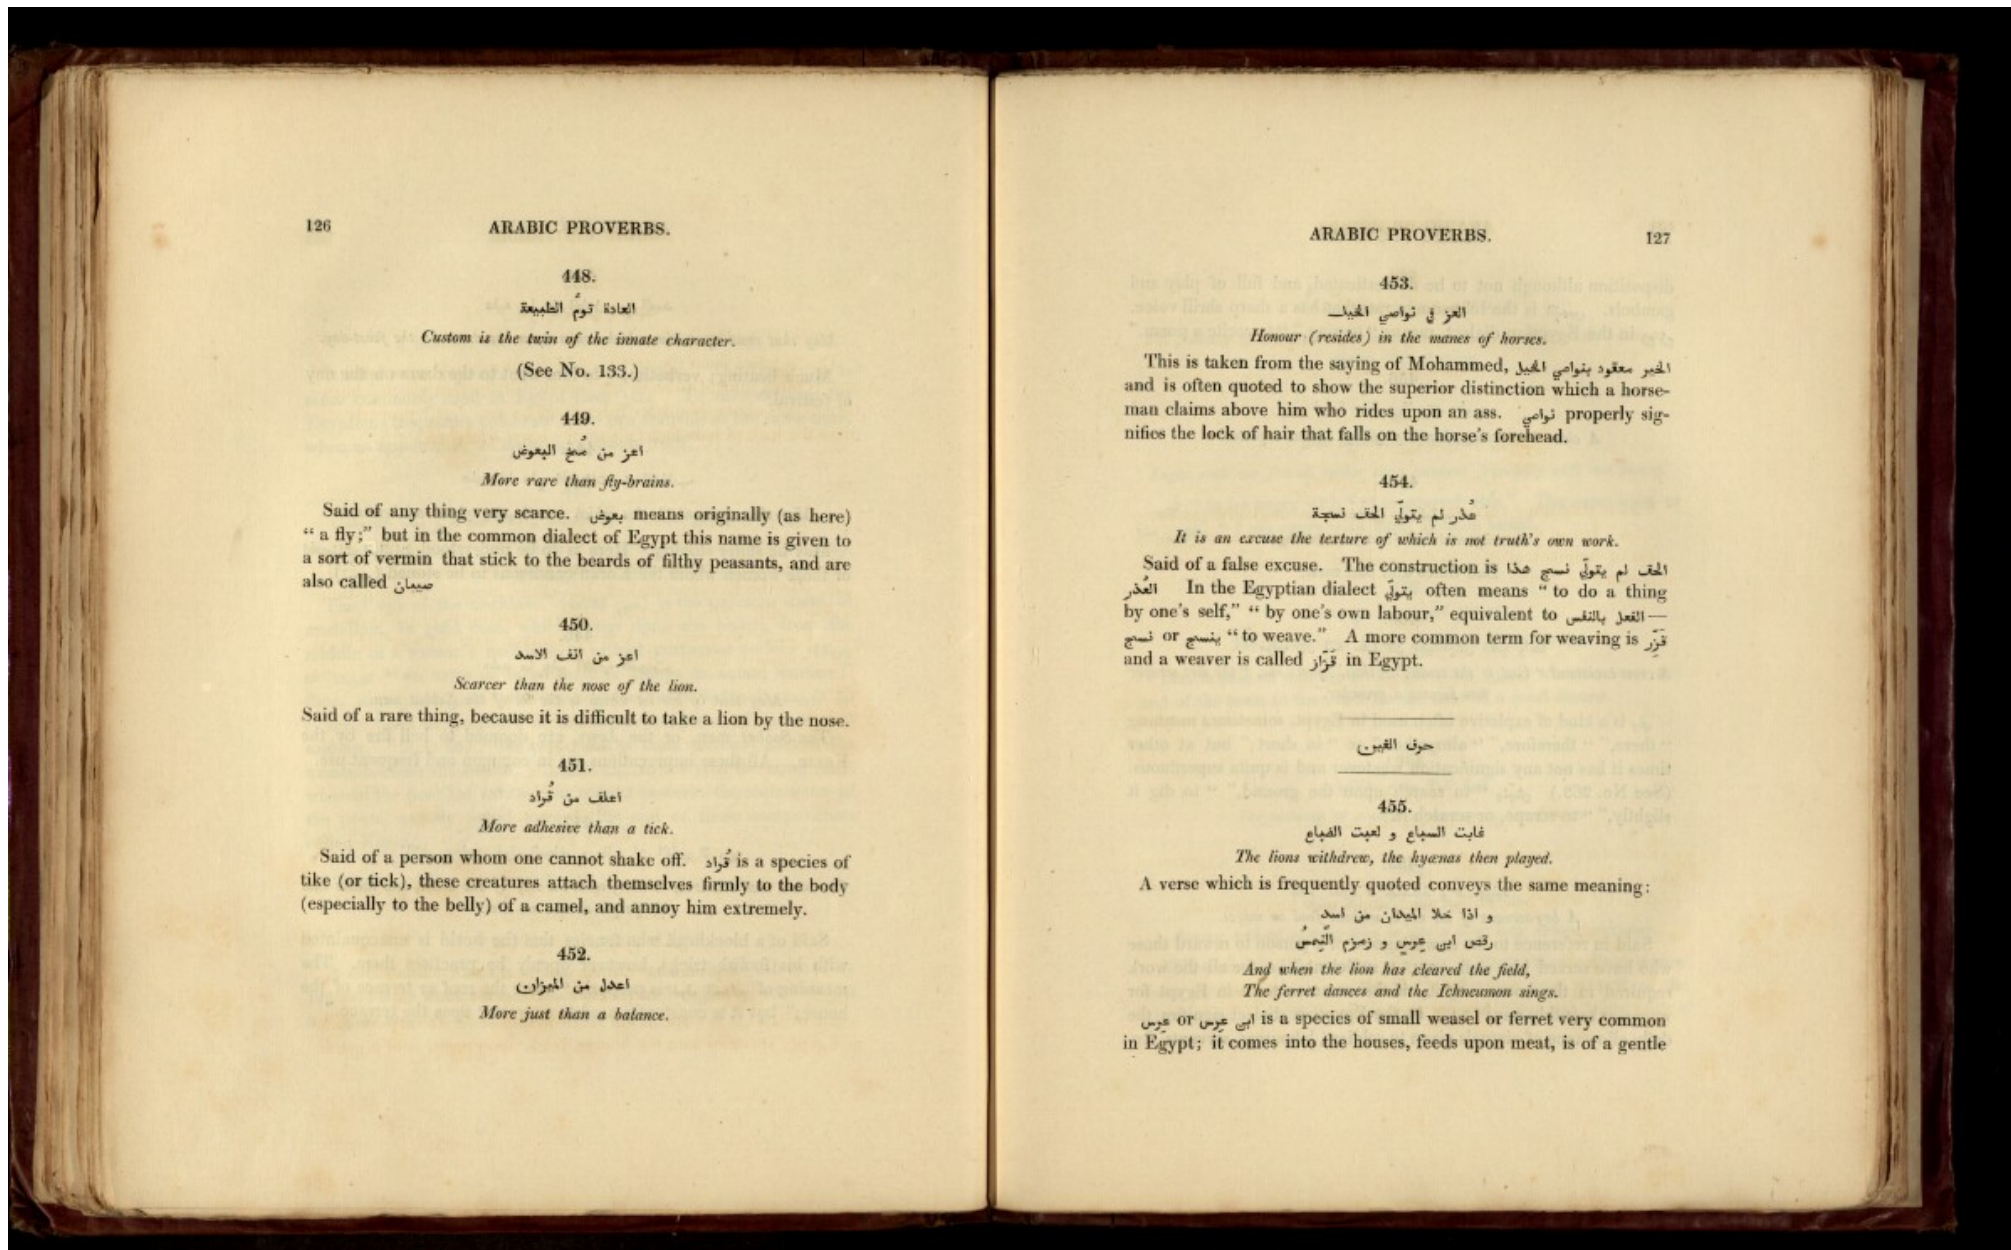 126
ARABIC PROVERBS.
448.
العادة تومّ الطبيعة
Custom is the twin of the innate character.
(See No. 133.)
449.
اعز من مُخ البعوض
More rare than fly-brains.
Said of any thing very scarce. بعوض means originally (as here)
“ a fly;” but in the common dialect of Egypt this name is given to
a sort of vermin that stick to the beards of filthy peasants, and are
also called صيبان
450.
اعز من انف الاسد
Scarcer than the nose of the lion.
Said of a rare thing, because it is difficult to take a lion by the nose.
451.
اعلق من قُراد
More adhesive than a tick.
Said of a person whom one cannot shake off. قُراد is a species of
tike (or tick), these creatures attach themselves firmly to the body
(especially to the belly) of a camel, and annoy him extremely.
452.
اعدل من الميزان
More just than a balance.
ARABIC PROVERBS.
127
453.
العز في نواصي الخيل
Honour (resides) in the manes of horses.
This is taken from the saying of Mohammed, الخير معقود بنواصي الخيل
and is often quoted to show the superior distinction which a horse-
man claims above him who rides upon an ass. نواصي properly sig-
nifies the lock of hair that falls on the horse’s forehead.
454.
عُذر لم يتولّي الحق نسجة
It is an excuse the texture of which is not truth’s own work.
Said of a false excuse. The construction is الحق لم يتولّي نسج هذا
العُذر In the Egyptian dialect يتولّي often means “ to do a thing
by one’s self,” “ by one’s own labour,” equivalent to الفعل بالنفس —
نسج or ينسج “ to weave.” A more common term for weaving is قَزِّز
and a weaver is called قَزّاز in Egypt.
حرف الغين
455.
غابت السباع و لعبت الضباع
The lions withdrew, the hyænas then played.
A verse which is frequently quoted conveys the same meaning:
و اذا خلا الميدان من اسد
رقص ابى عِرس و زمزم النِّمسُ
And when the lion has cleared the field,
The ferret dances and the Ichneumon sings.
عِرس or ابى عِرس is a species of small weasel or ferret very common
in Egypt; it comes into the houses, feeds upon meat, is of a gentle